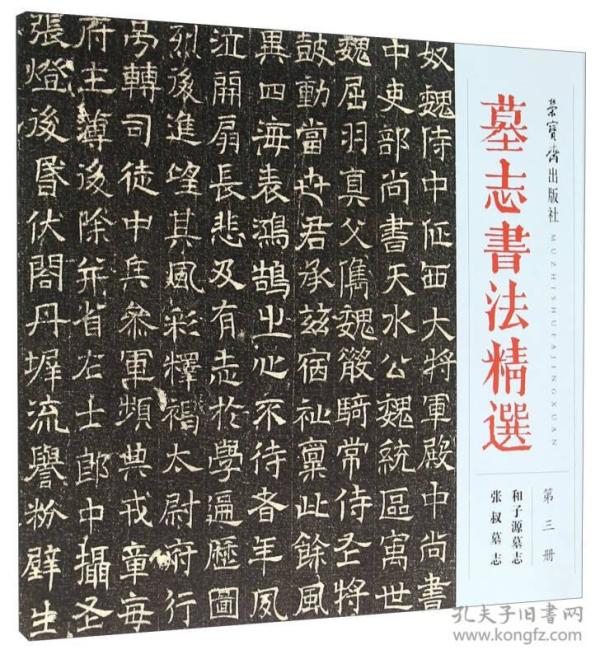 奴魏侍中征西大將軍殿中尚書
中吏部尚書天水公魏統區寓世
魏屈羽真父儁魏散騎常侍圣將
鼓動當世君承兹宿祉稟此餘風
異四海表鴻鵠之心不待者年夙
泣開扇長悲及有志於學遍歷圖
列後進望其風彩釋褐太尉府行
号轉司徒中兵參軍頻典戎章每
府主薄後除并省右士郎中攝圣
張燈後層伏閤丹墀流譽粉壁生
榮寶齋出版社
墓志書法精選
MUZHISHUFAJINGXUAN
第三册
和子源墓志
张叔墓志
孔夫子旧书网
www.kongfz.com